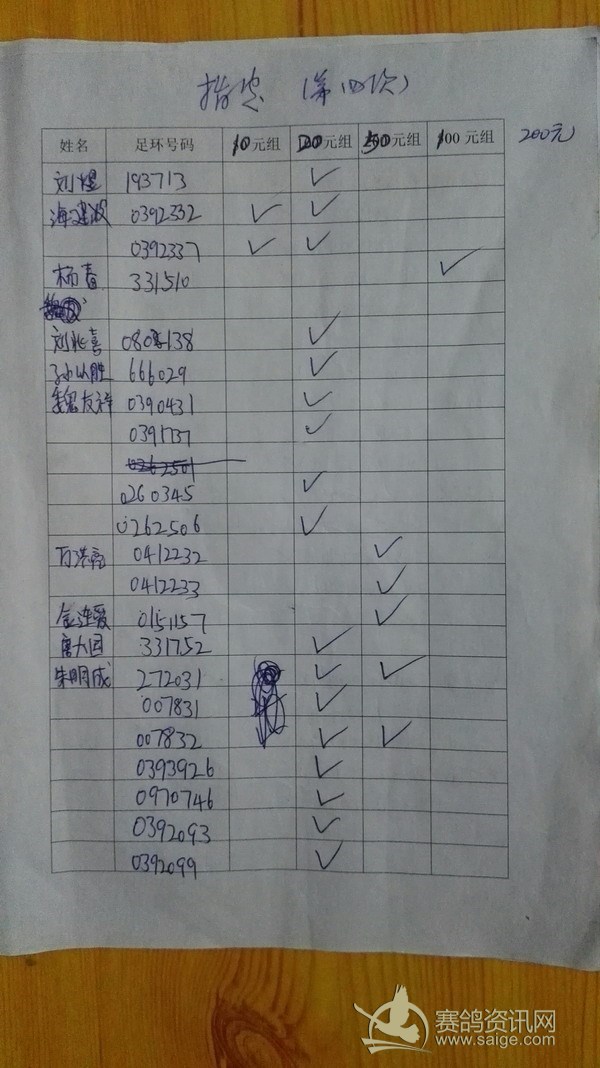 指定 (第四次)
姓名 足环号码 10元组 元组 元组 100元组 200元
刘煜 193713 ✓
海建波 0392332 ✓ ✓
0392337 ✓ ✓
杨春 331510 ✓
刘兆喜 138 ✓
孙从胜 666029 ✓
魏友祥 0390431 ✓
0391737 ✓
0262501
0260345 ✓
0262506 ✓
万洪亮 0412232 ✓
0412233 ✓
金连爱 0151157 ✓
唐大国 331752 ✓
朱明成 272031 ✓ ✓
007831 ✓
007832 ✓ ✓
0393926 ✓
0970746 ✓
0392093 ✓
0392099 ✓
赛鸽资讯网
www.saige.com